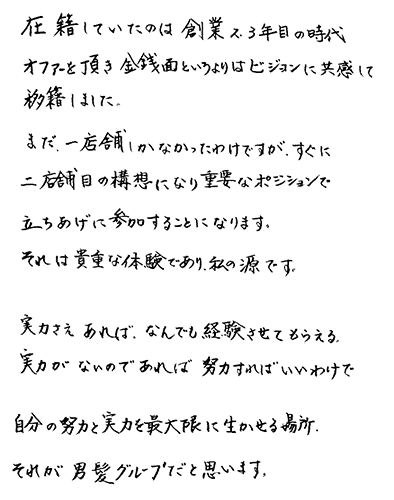 在籍していたのは創業で3年目の時代
オファーを頂き金銭面というよりはビジョンに共感して
移籍しました。
まだ、一店舗しかなかったわけですが、すぐに
二店舗目の構想になり重要なポジションで
立ちあげに参加することになります。
それは貴重な体験であり、私の源です。
実力さえあれば、なんでも経験させてもらえる。
実力がないのであれば努力すればいいわけで
自分の努力と実力を最大限に生かせる場所、
それが男髪グループだと思います。